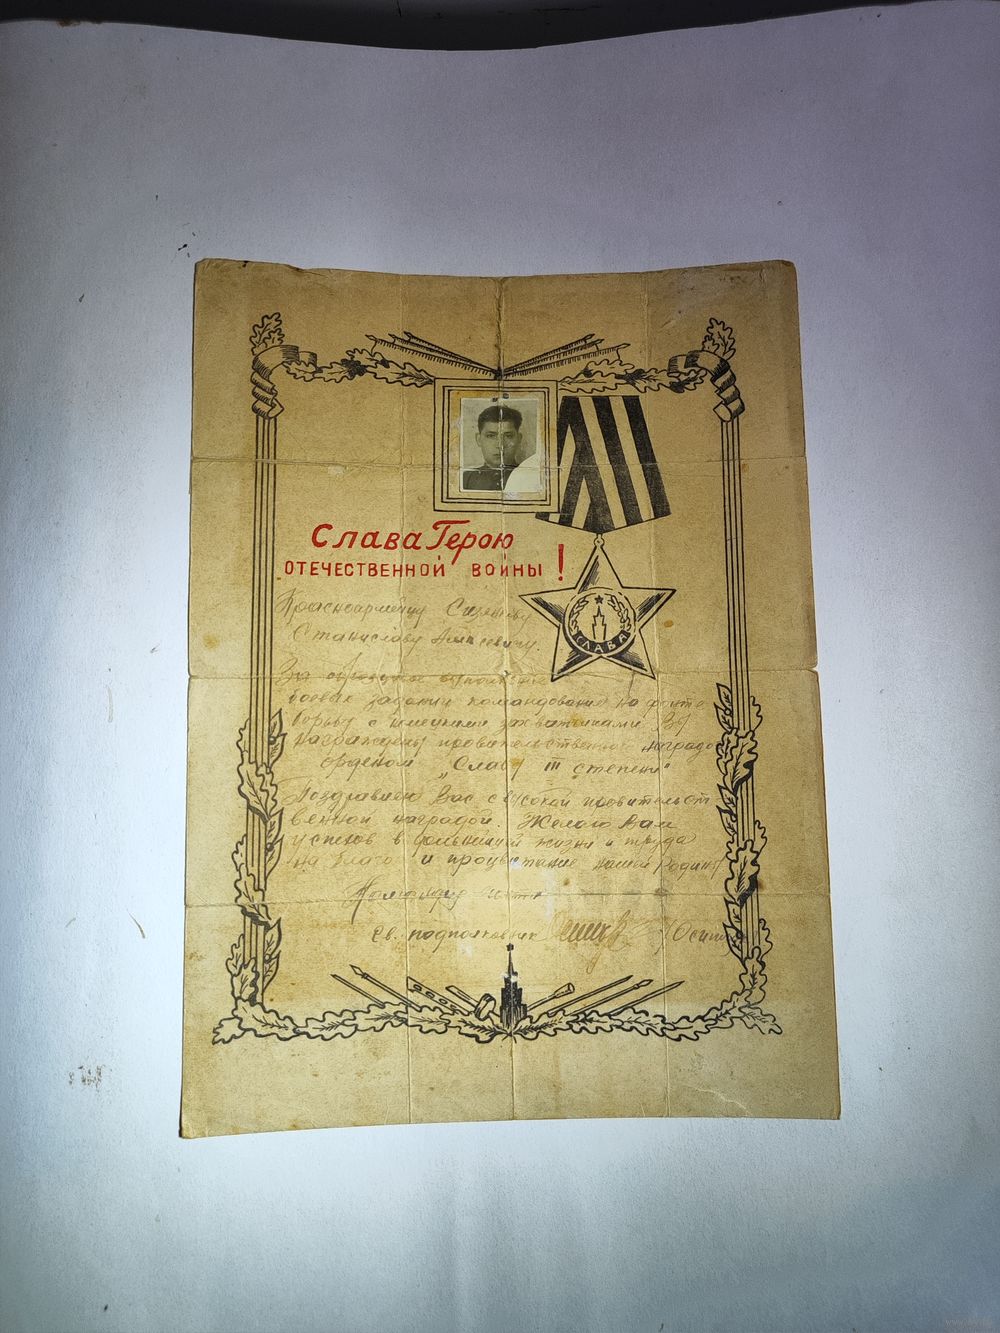 Слава Герою
ОТЕЧЕСТВЕННОЙ ВОЙНЫ!
Красноармейцу
Станиславу
СЛАВА
За
боевых задани командования на фронте
борьбы с немецкими захватчиками Вы
награждены правительственной наградой
орденом „Славы III степени“
Поздравляю Вас с высокой правительст
венной наградой. Желаю Вам
успехов в дальнейшей жизни и труда
на благо и процветание нашей Родины
гв. подполковник